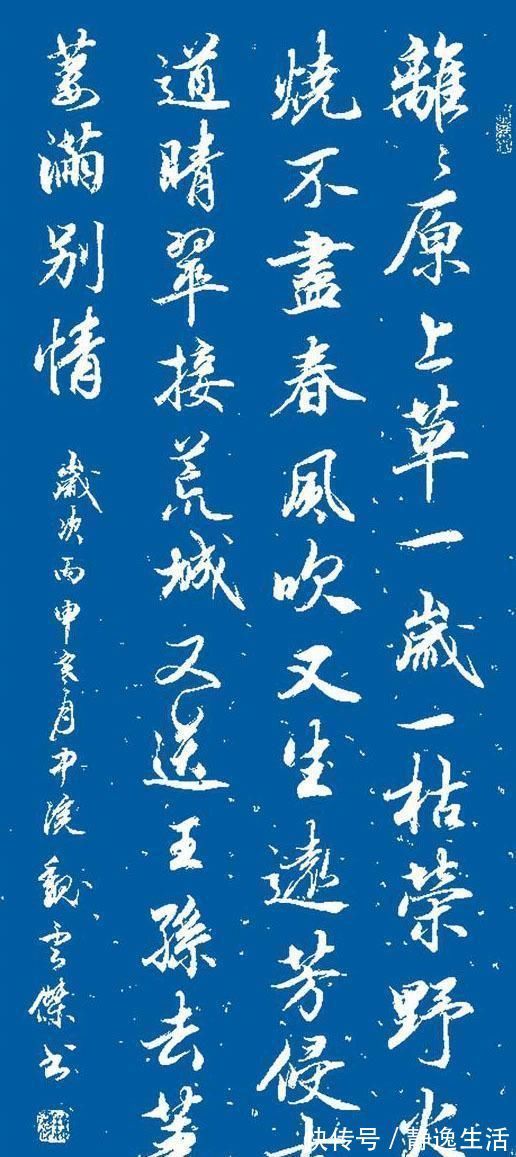 離〻原上草一歲一枯榮野火
燒不盡春風吹又生遠芳侵
道晴翠接荒城又送王孫去萋
萋滿別情
歲次丙申亥月中浣魏雲傑书
快传号/静逸生活